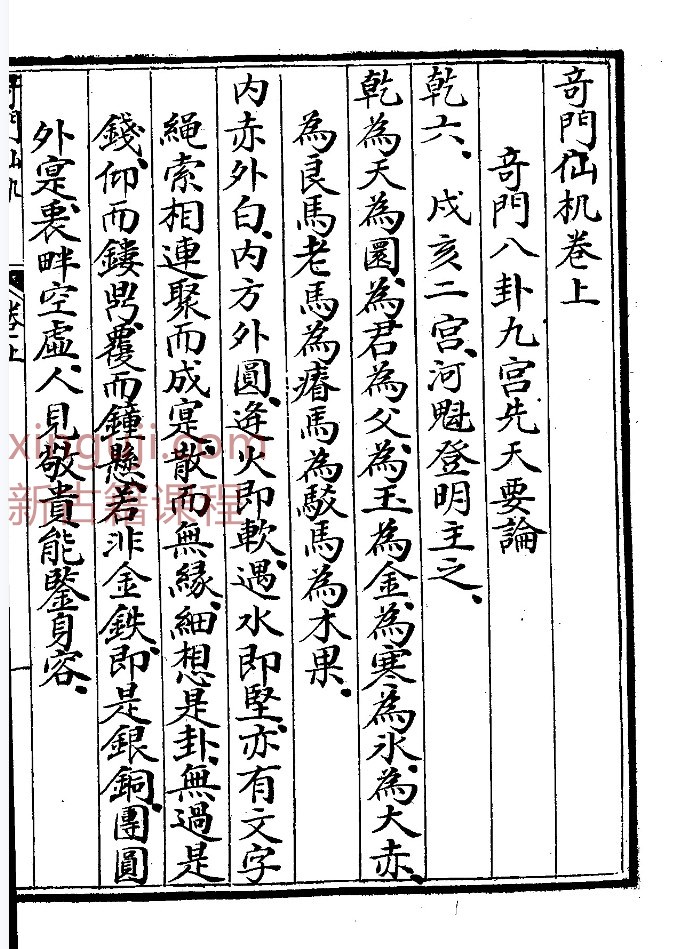 奇門仙机卷上
奇門八卦九宮先天要論
乾六、戌亥二宮、河魁登明主之、
乾為天為圜、為君為父、為玉為金、為寒為氷、為大赤、
為良馬老馬為瘠馬為駁馬為木果、
内赤外白、内方外圓、逢火即軟、遇水即堅、亦有文字
繩索相連聚而成寔、散而無緣、細想是卦、無過是
錢、仰而鏤鼎、覆而鐘懸、若非金鉄、即是銀銅、團圓
外寔、裏畔空虛、人見敬貴能鑒身容、
奇門仙机
卷上
xinguji.com
新古籍课程